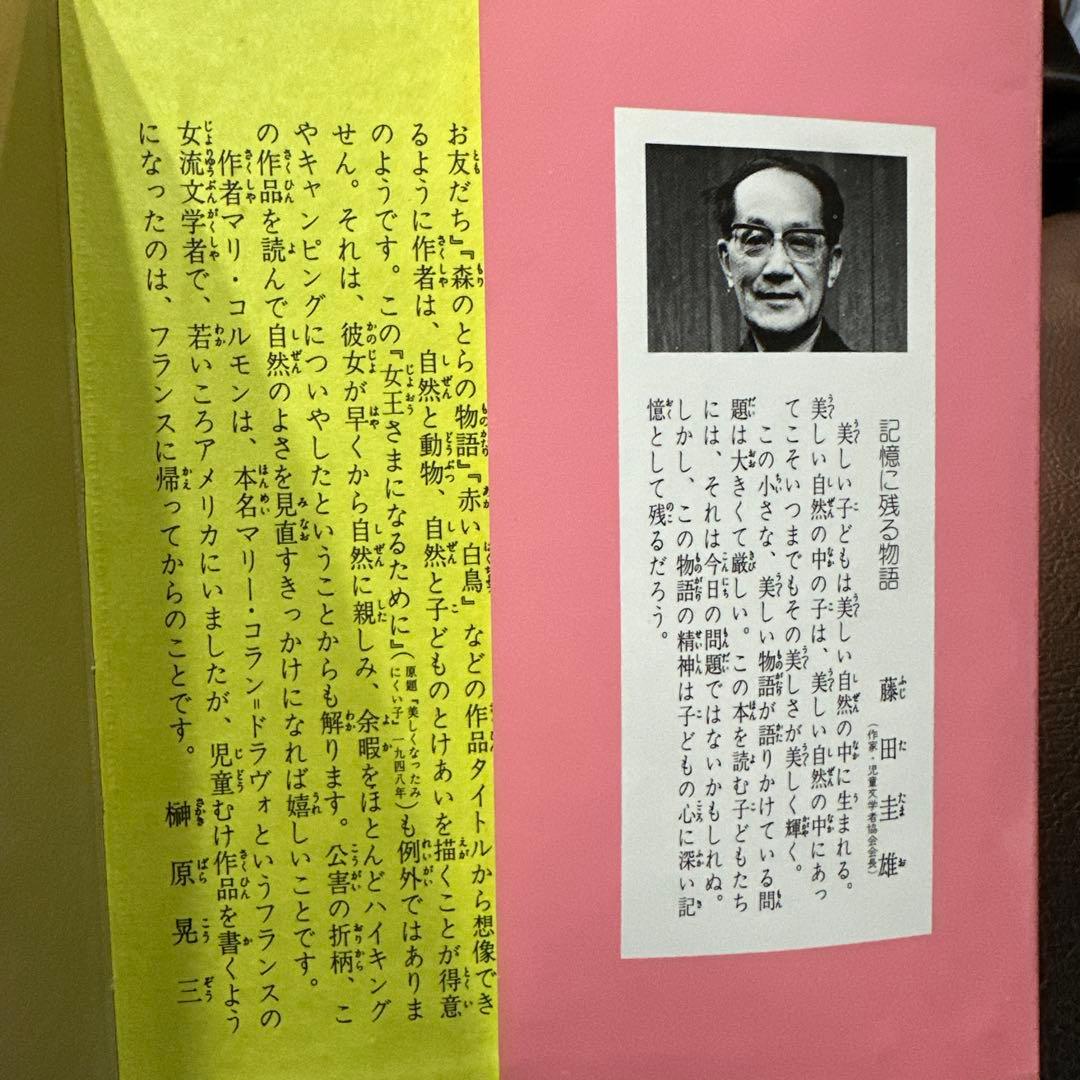 記憶に残る物語
藤田圭雄
(作家・児童文学者協会会長)
美しい子どもは美しい自然の中に生まれる。
美しい自然の中の子は、美しい自然の中にあっ
てこそいつまでもその美しさが美しく輝く。
この小さな、美しい物語が語りかけている問
題は大きくて厳しい。この本を読む子どもたち
には、それは今日の問題ではないかもしれぬ。
しかし、この物語の精神は子どもの心に深い記
憶として残るだろう。
お友だち』『森のとらの物語』『赤い白鳥』などの作品タイトルから想像でき
るように作者は、自然と動物、自然と子どものとけあいを描くことが得意
のようです。この『女王さまになるために』(原題『美しくなったみにくい子』一九四八年)も例外ではありま
せん。それは、彼女が早くから自然に親しみ、余暇をほとんどハイキング
やキャンピングについやしたということからも解ります。公害の折柄、こ
の作品を読んで自然のよさを見直すきっかけになれば嬉しいことです。
作者マリ・コルモンは、本名マリー・コラン=ドラヴォというフランスの
女流文学者で、若いころアメリカにいましたが、児童むけ作品を書くよう
になったのは、フランスに帰ってからのことです。
榊原晃三